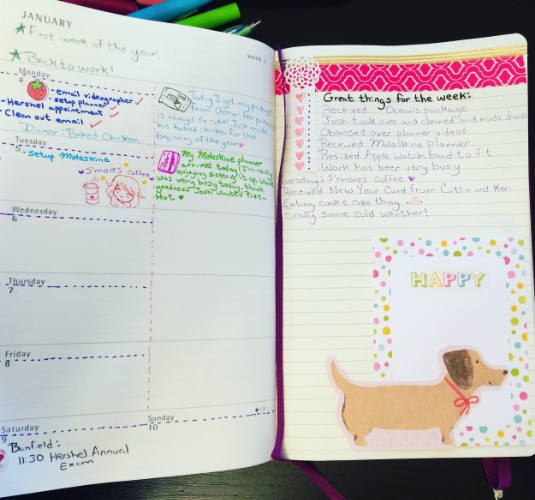 JANUARY
week 2
First week of the year!
Back to work!
Monday
4
- email videographer
- setup planner
- Hershel appointment
- Clean out email
Dinner: Baked Chicken
Today I got my package
is always so cute! Josh made
his baked chicken for the
beginning of the year
Tuesday
5
- setup Moleskine
S'mores coffee
My Moleskine planner
arrived today! I'm really
enjoying setting it up. Work
was very busy today, thank
goodness Josh wanted Pizza
Hut
Wednesday
6
Thursday
7
Friday
8
Saturday
9
Sunday
10
Banfield:
11:30 Hershel Annual
Exam
Great things for the week:
Received package
Josh took over and cleaned and made dinner
Obsessed over planner videos
Received Moleskine planner
Resized Apple Watch band to fit
Work has been very busy
Tuesday: S'mores coffee
Received New Year Card from Caitlin and Ken
Eating cookie cake thing
Finally some cold weather!
HAPPY